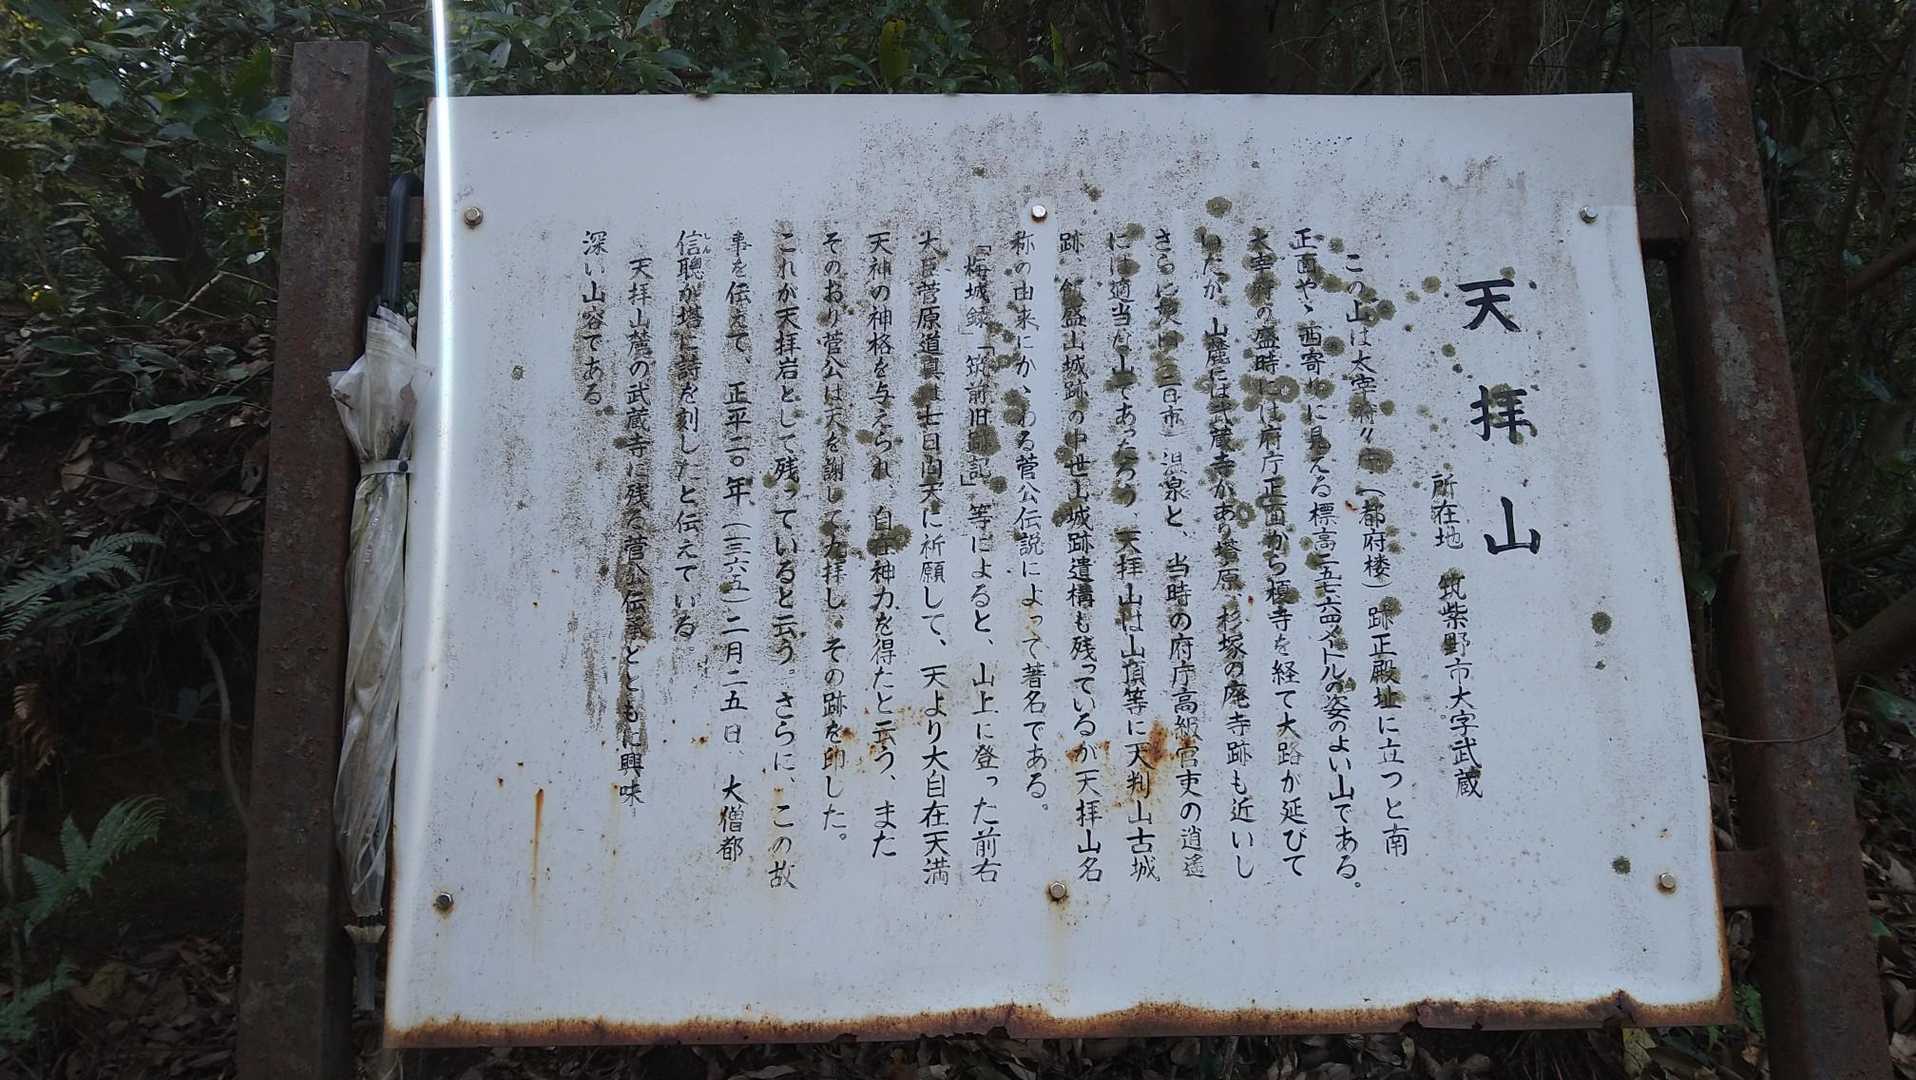 天拝山
所在地 筑紫野市大字武蔵
この山は太宰府 (都府楼)跡正殿址に立つと南
正面やゝ西寄りに見える標高二五七・六メートルの姿のよい山である。
太宰府の盛時には府庁正面から榎寺を経て大路が延びて
いたが、山麓には武蔵寺があり塔原、杉塚の廃寺跡も近いし
さらに 二日市 温泉と、当時の府庁高級官吏の逍遥
には適当な山であったろう、天拝山は山頂等に天判山古城
跡、飯盛山城跡の中世山城跡遺構も残っているが天拝山名
称の由来にかゝわる菅公伝説によって著名である。
「梅城録」「筑前旧 記」等によると、山上に登った前右
大臣菅原道真は七日間天に祈願して、天より大自在天満
天神の神格を与えられ、自在神力を得たと云う、また
そのおり菅公は天を謝して九拝し、その跡を印した。
これが天拝岩として残っていると云う。さらに、この故
事を伝えて、正平二〇年(一三六五)二月二五日、大僧都
信聰が塔に詩を刻したと伝えている。
しん
天拝山麓の武蔵寺に残る菅公伝承とともに興味
深い山容である。